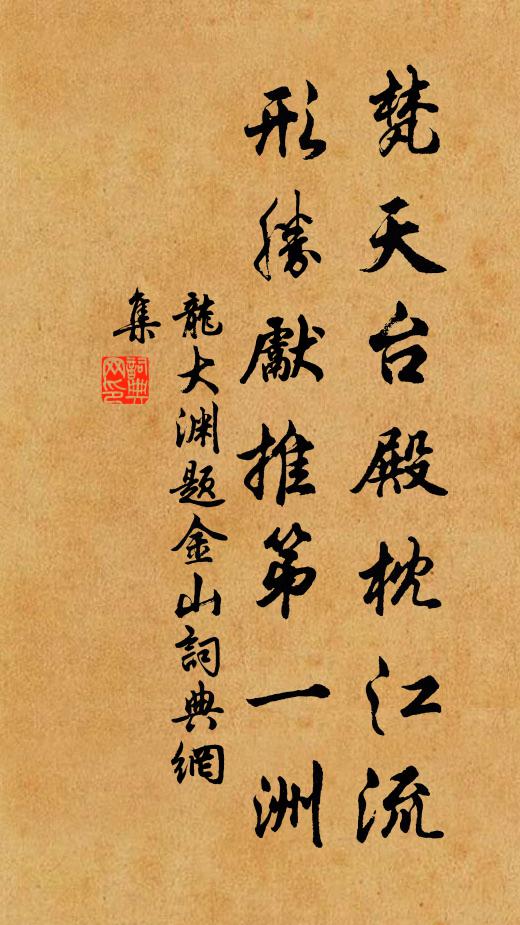 梵天台殿枕江流
形勝獻推第一洲
龍大渊題金山詞典網
集
詞典網印